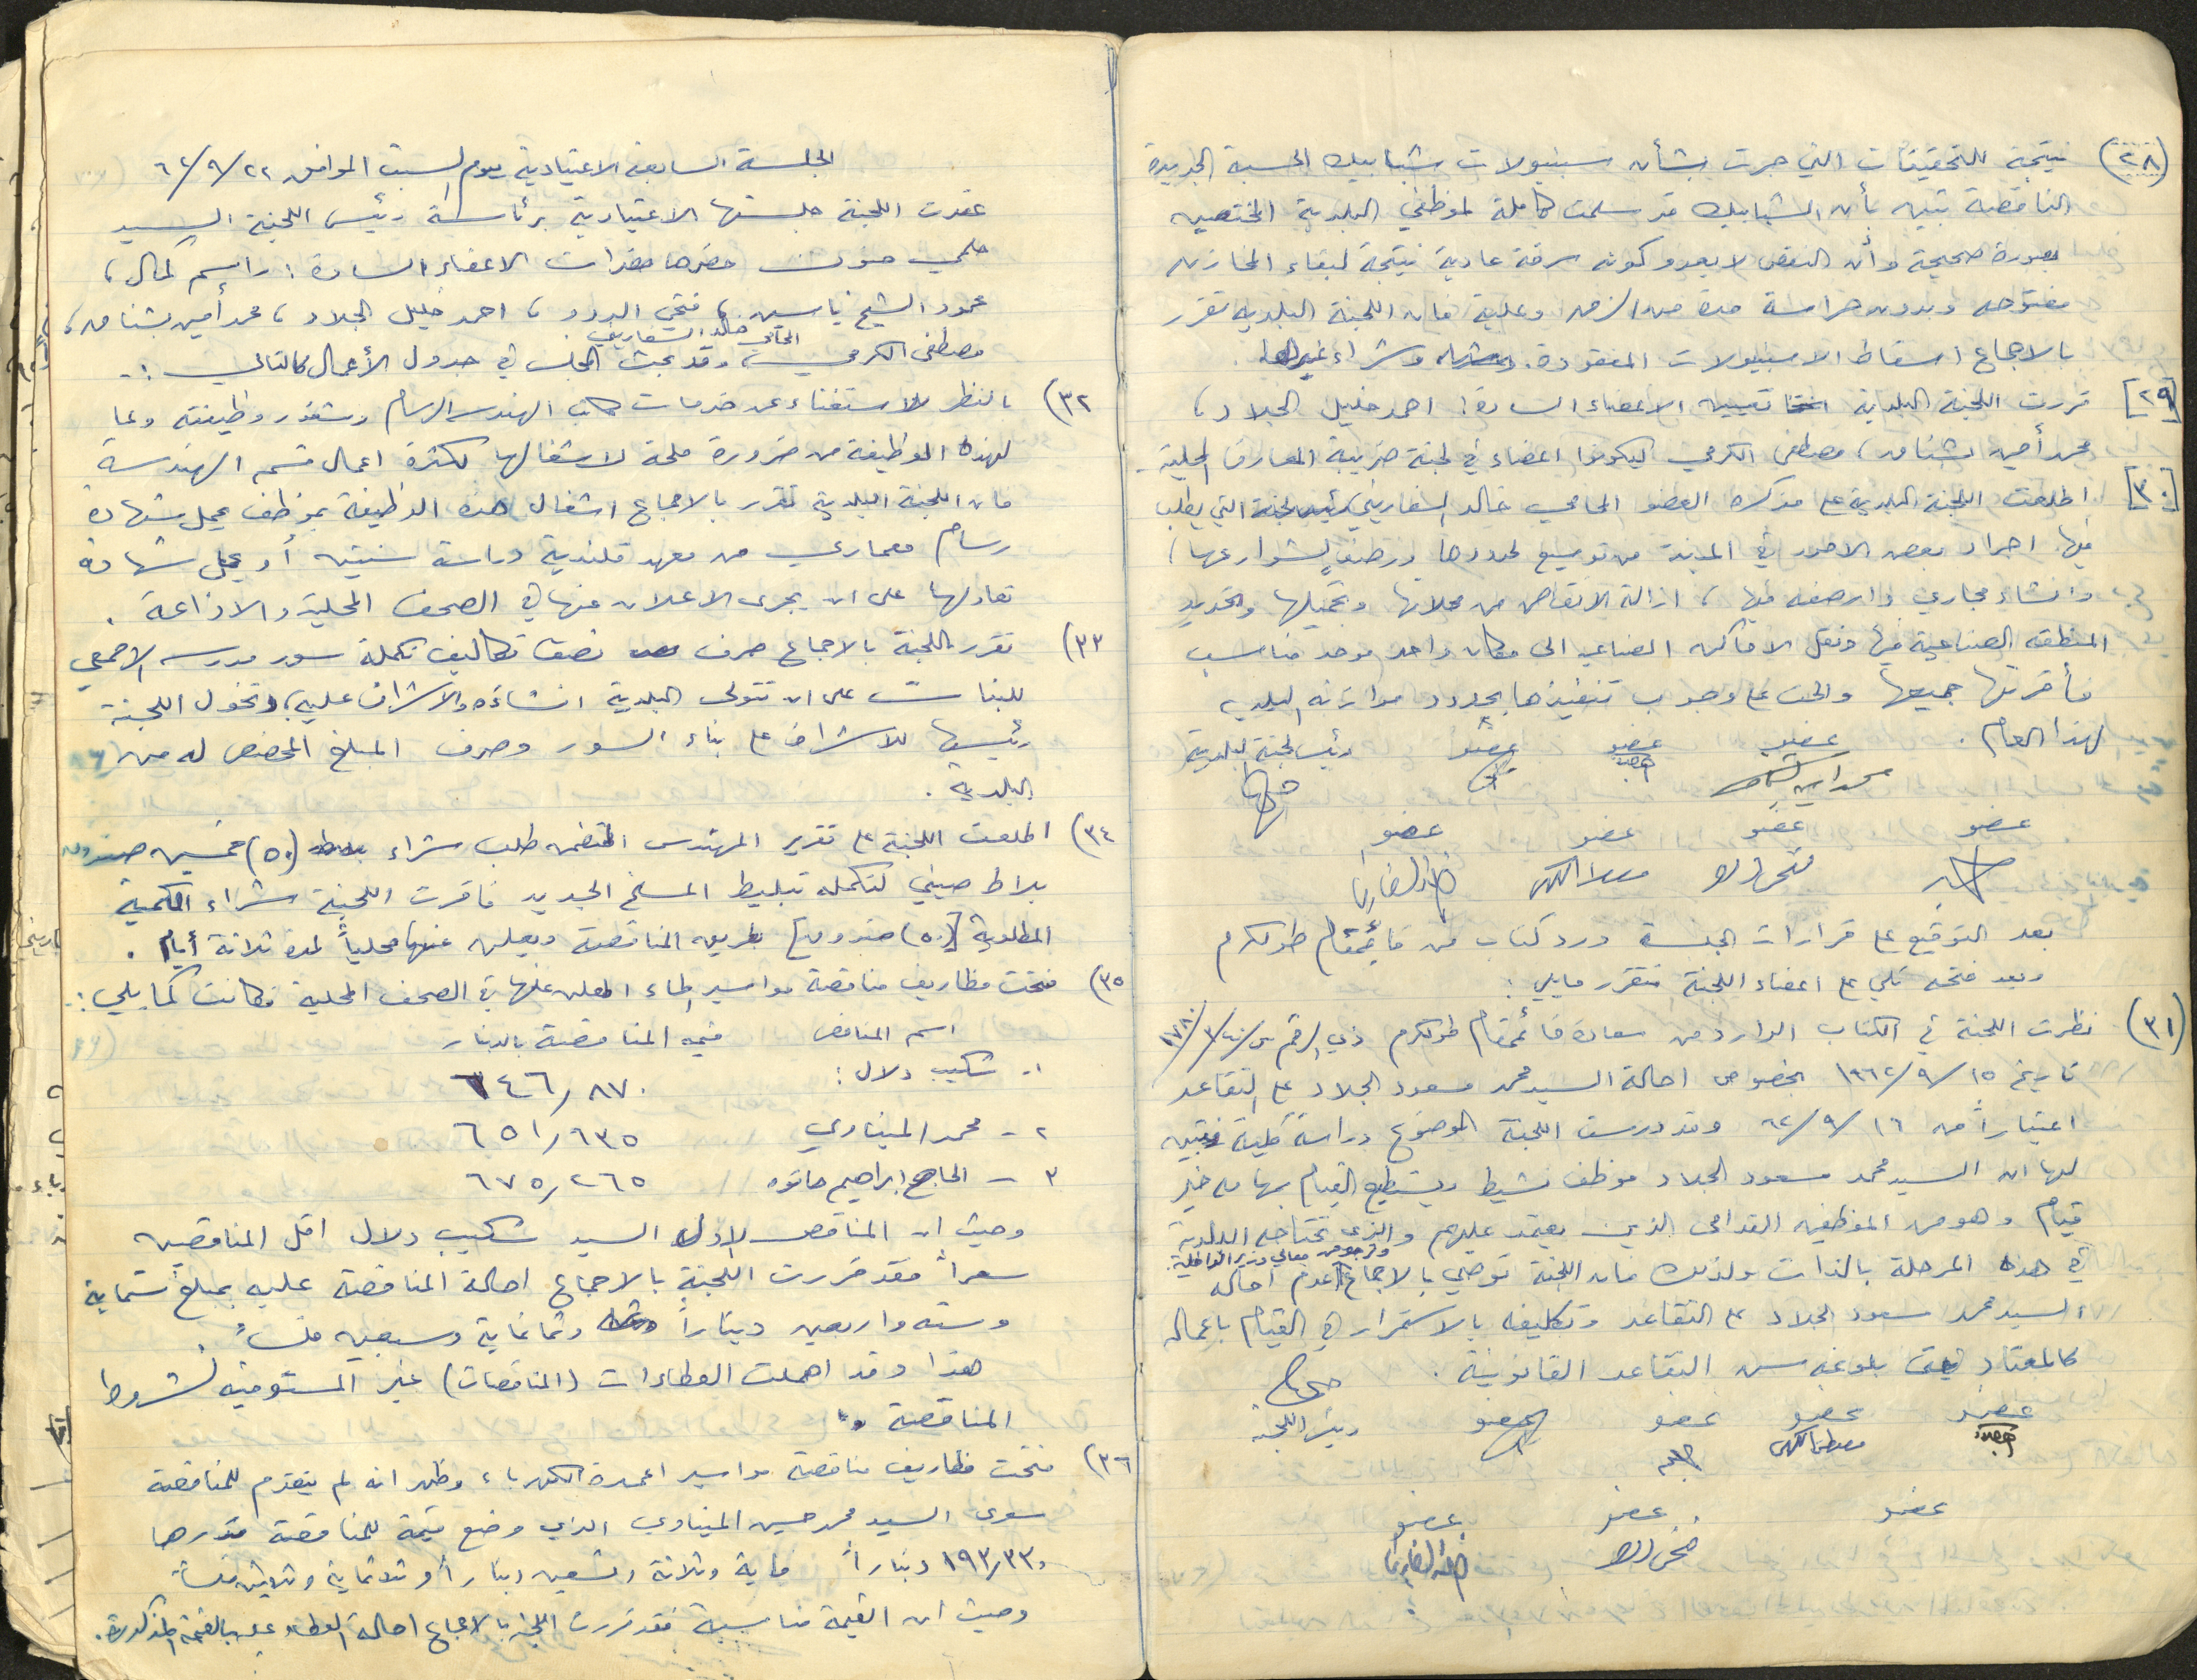 (٢٨) نتيجة للتحقيقات التي جرت بشأن سبنيولات شبابيك الحسبة الجديدة
الناقصة تبين بأن الشبابيك قد سلمت كاملة لموظفي البلدية المختصين
بصورة صحيحة وأن النقص لا يعدو كونه سرقة عادية نتيجة لبقاء المخازن
مفتوحه وبدون حراسة مدة من الزمن وعليه فان اللجنة البلدية تقرر
بالاجماع اسقاط الاسبنيولات المفقودة. وشراء غيرها.
[٢٩] قررت اللجنة البلدية تعيين الاعضاء السادة: احمد خليل الجلاد،
محمد أمين بشناق، مصطفى الكرمي ليكونوا اعضاء في لجنة ضريبة المعارف المحلية.
[٣٠] اطلعت اللجنة البلدية على مذكرة العضو المحامي خالد السفاريني التي يطلب
فيها اجراء بعض الامور في المدينة من توسيع لحدودها ورصف لشوارعها،
وانشاء مجاري وارصفه فيها، ازالة الانقاض من محلاتها وتجميلها وتحديد
المنطقه الصناعية فيها ونقل الاماكن الصناعيه الى مكان واحد موحد مناسب
فأقرتها جميعها والحت على وجوب تنفيذها بحدود موازنه البلديه
لهذا العام.
عضو عضو عضو رئيس لجنة البلدية
عضو عضو عضو عضو
بعد التوقيع على قرارات الجلسة ورد كتاب من قائمقام طولكرم
وبعد فتحه تلي على اعضاء اللجنة فتقرر مايلي:
(٣١) نظرت اللجنة في الكتاب الوارد من سعادة قائمقام طولكرم ذي الرقم
تاريخ ١٥/٩/١٩٦٢ بخصوص احالة السيد محمد مسعود الجلاد على التقاعد
اعتباراً من ١٦/٩/٦٢ وقد درست اللجنة الموضوع دراسة كلية فتبين
لها ان السيد محمد مسعود الجلاد موظف نشيط ويستطيع القيام بمهامه خير
قيام وهو من الموظفين القدامى الذين يعتمد عليهم والذي تحتاجه البلدية
في هذه المرحلة بالذات ولذلك فان اللجنة توصي بالاجماع وترجو من معالي وزير الداخلية عدم احالة
السيد محمد مسعود الجلاد على التقاعد وتكليفه بالاستمرار في القيام باعماله
كالمعتاد بلوغه سن التقاعد القانونية.
عضو عضو عضو عضو رئيس اللجنة
عضو عضو عضو
الجلسة السابعة الاعتيادية يوم السبت الموافق ٢٢/٩/٦٢
عقدت اللجنة جلستها الاعتيادية برئاسة رئيس اللجنة السيد
حلمي حنون حضرها حضرات الاعضاء السادة: راسم كمال،
محمود الشيخ ياسين، فتحي البدو، احمد خليل الجلاد، محمد أمين بشناق،
مصطفى الكرمي المحامي خالد السفاريني وقد بحث المجلس في جدول الأعمال كالتالي:-
٣٢) بالنظر للاستغناء عن خدمات المهندس الرسام وشغور وظيفته وبما
لهذه الوظيفة من ضرورة ملحة لاشغالها لكثرة اعمال قسم الهندسة
فان اللجنة البلدية تقرر بالاجماع اشغال هذه الوظيفة بموظف يحمل شهادة
رسام معماري من معهد قلنديه دراسة سنتين أو يحمل شهادة
تعادلها على ان يجري الاعلان عنها في الصحف المحلية والاذاعة.
٣٣) تقرر اللجنة بالاجماع صرف نصف تكاليف تكملة سور مدرسة الاصمعي
للبنات على ان تتولى البلدية انشاؤه والاشراف عليه، وتخول اللجنة
رئيسها للاشراف على بناء السور وصرف المبلغ المخصص له من
البلدية.
٣٤) اطلعت اللجنة على تقرير المهندس المتضمن طلب شراء (٥٠) خمسين صندوق
بلاط صيني لتكمله تبليط المسلخ الجديد فاقرت اللجنة شراء الكمية
المطلوبة [(٥٠) صندوق] بطريق المناقصة ويعلن عنها محلياً لمدة ثلاثة أيام.
٣٥) فتحت مظاريف مناقصة مواسير الماء المعلن عنها في الصحف المحلية فكانت كما يلي:-
اسم المناقص قيمه المناقصة بالدينار
١- شكيب دلال: ٦٤٦/٨٧٠
٢- محمد الميناوي ٦٥١/٦٣٥
٣- الحاج ابراهيم حانوه ٦٧٥/٢٦٥
وحيث ان المناقص الاول السيد شكيب دلال اقل المناقصين
سعراً فقد قررت اللجنة بالاجماع احالة المناقصة عليه بمبلغ ستماية
وسته واربعين ديناراً وثمانماية وسبعين فلساً.
هذا وقد اهملت العطاءات (المناقصات) غير المستوفيه لشروط
المناقصة.
٣٦) فتحت مظاريف مناقصة مواسير اعمدة الكهرباء وظهر انه لم يتقدم للمناقصة
سوى السيد محمد حسين الميناوي الذي وضع قيمة للمناقصة قدرها
١٩٣/٣٣٠ ديناراً ماية وثلاثة وتسعين ديناراً وثلاثماية وثلاثين فلساً
وحيث ان القيمة مناسبة فقد قررت اللجنة بالاجماع احالة العطاء عليه بالقيمة المذكورة.